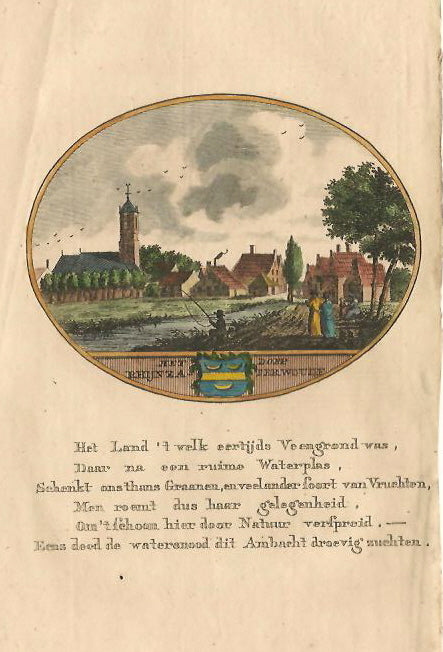 HET DORP
RHIJNZATERWOUDE
Het Land 't welk eertijds Veengrond was,
Daar na een ruime Waterplas,
Schenkt ons thans Graanen, en veelander soort van Vruchten,
Men roemt dus haar gelegenheid,
Om't schoon hier door Natuur verspreid. —
Eens deed de watersnood dit Ambacht droevig zuchten.